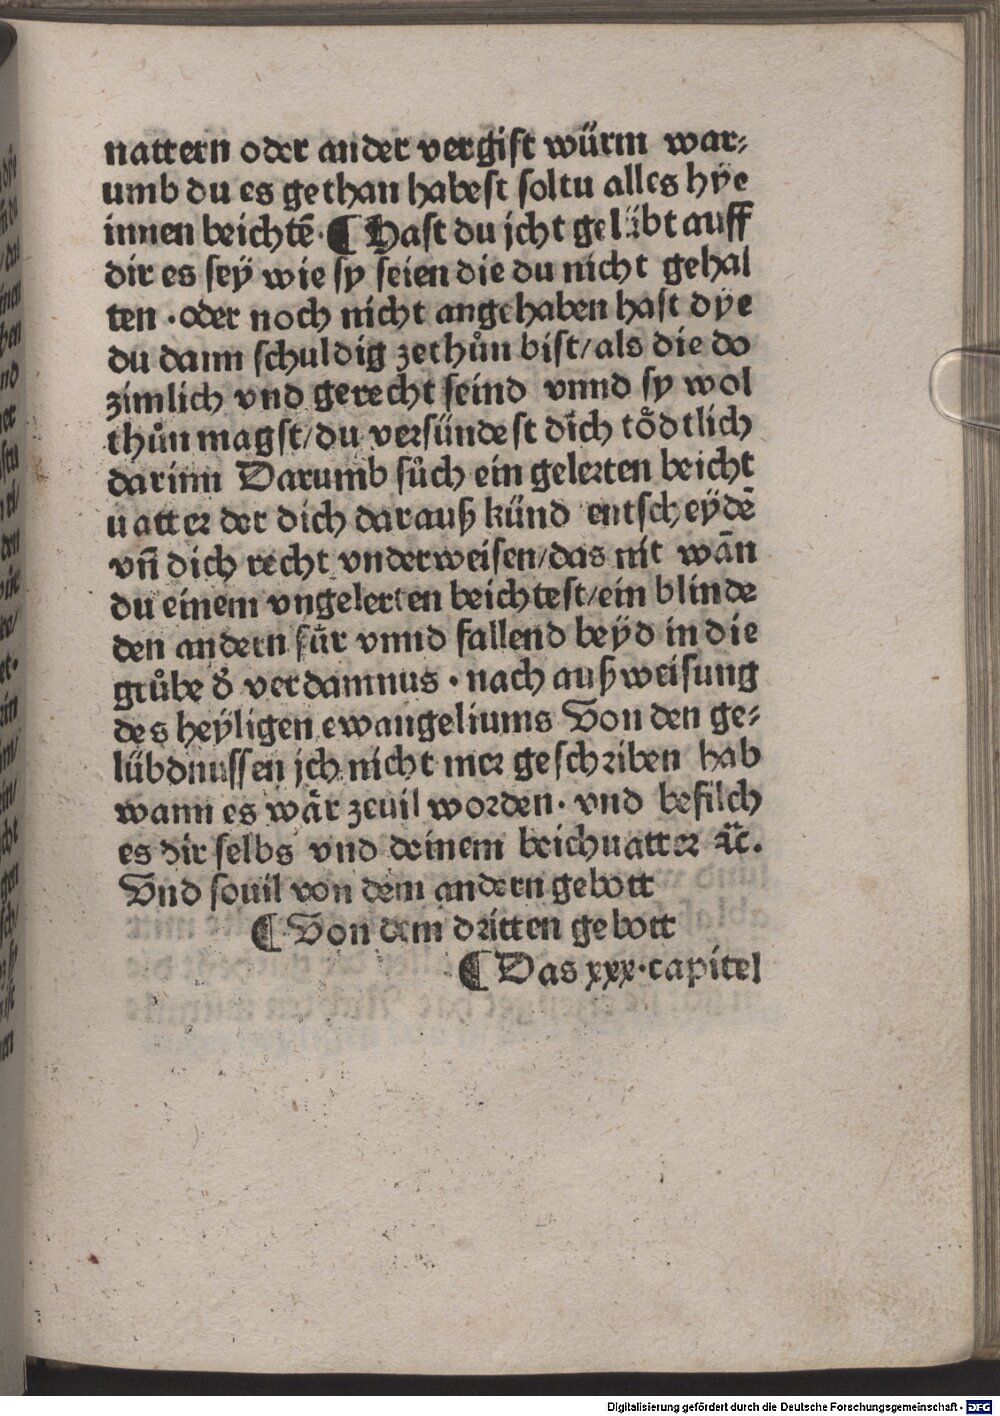 nattern oder ander vergift würm war⸗
umb du es gethan habest soltu alles hÿe
innen beichtē · ¶ Hast du jcht gelübt auff
dir es seÿ wie sy seien die du nicht gehal
ten · oder noch nicht angehaben hast dÿe
du dann schuldig zethůn bist/als die do
zimlich vnd gerecht seind vnnd sy wol
thůn magst/du versündest dich tödtlich
darinn Darumb sůch ein gelerten beicht
uatter der dich darauß künd entscheÿdē
vn̄ dich recht vnderweisen/das nit wān
du einem vngelerten beichtest/ein blinde
den andern für vnnd fallend beÿd in die
grůbe d̾ verdamnus · nach außweisung
des heÿligen ewangeliums Von den ge⸗
lübdnussen jch nicht mer geschriben hab
wann es wär zeuil worden · vnd befilch
es dir selbs vnd deinem beichuatter ꝛc̄.
Vnd souil von dem andern gebott
¶ Von dem dritten gebott
¶ Das xxx · capitel
Digitalisierung gefördert durch die Deutsche Forschungsgemeinschaft · DFG